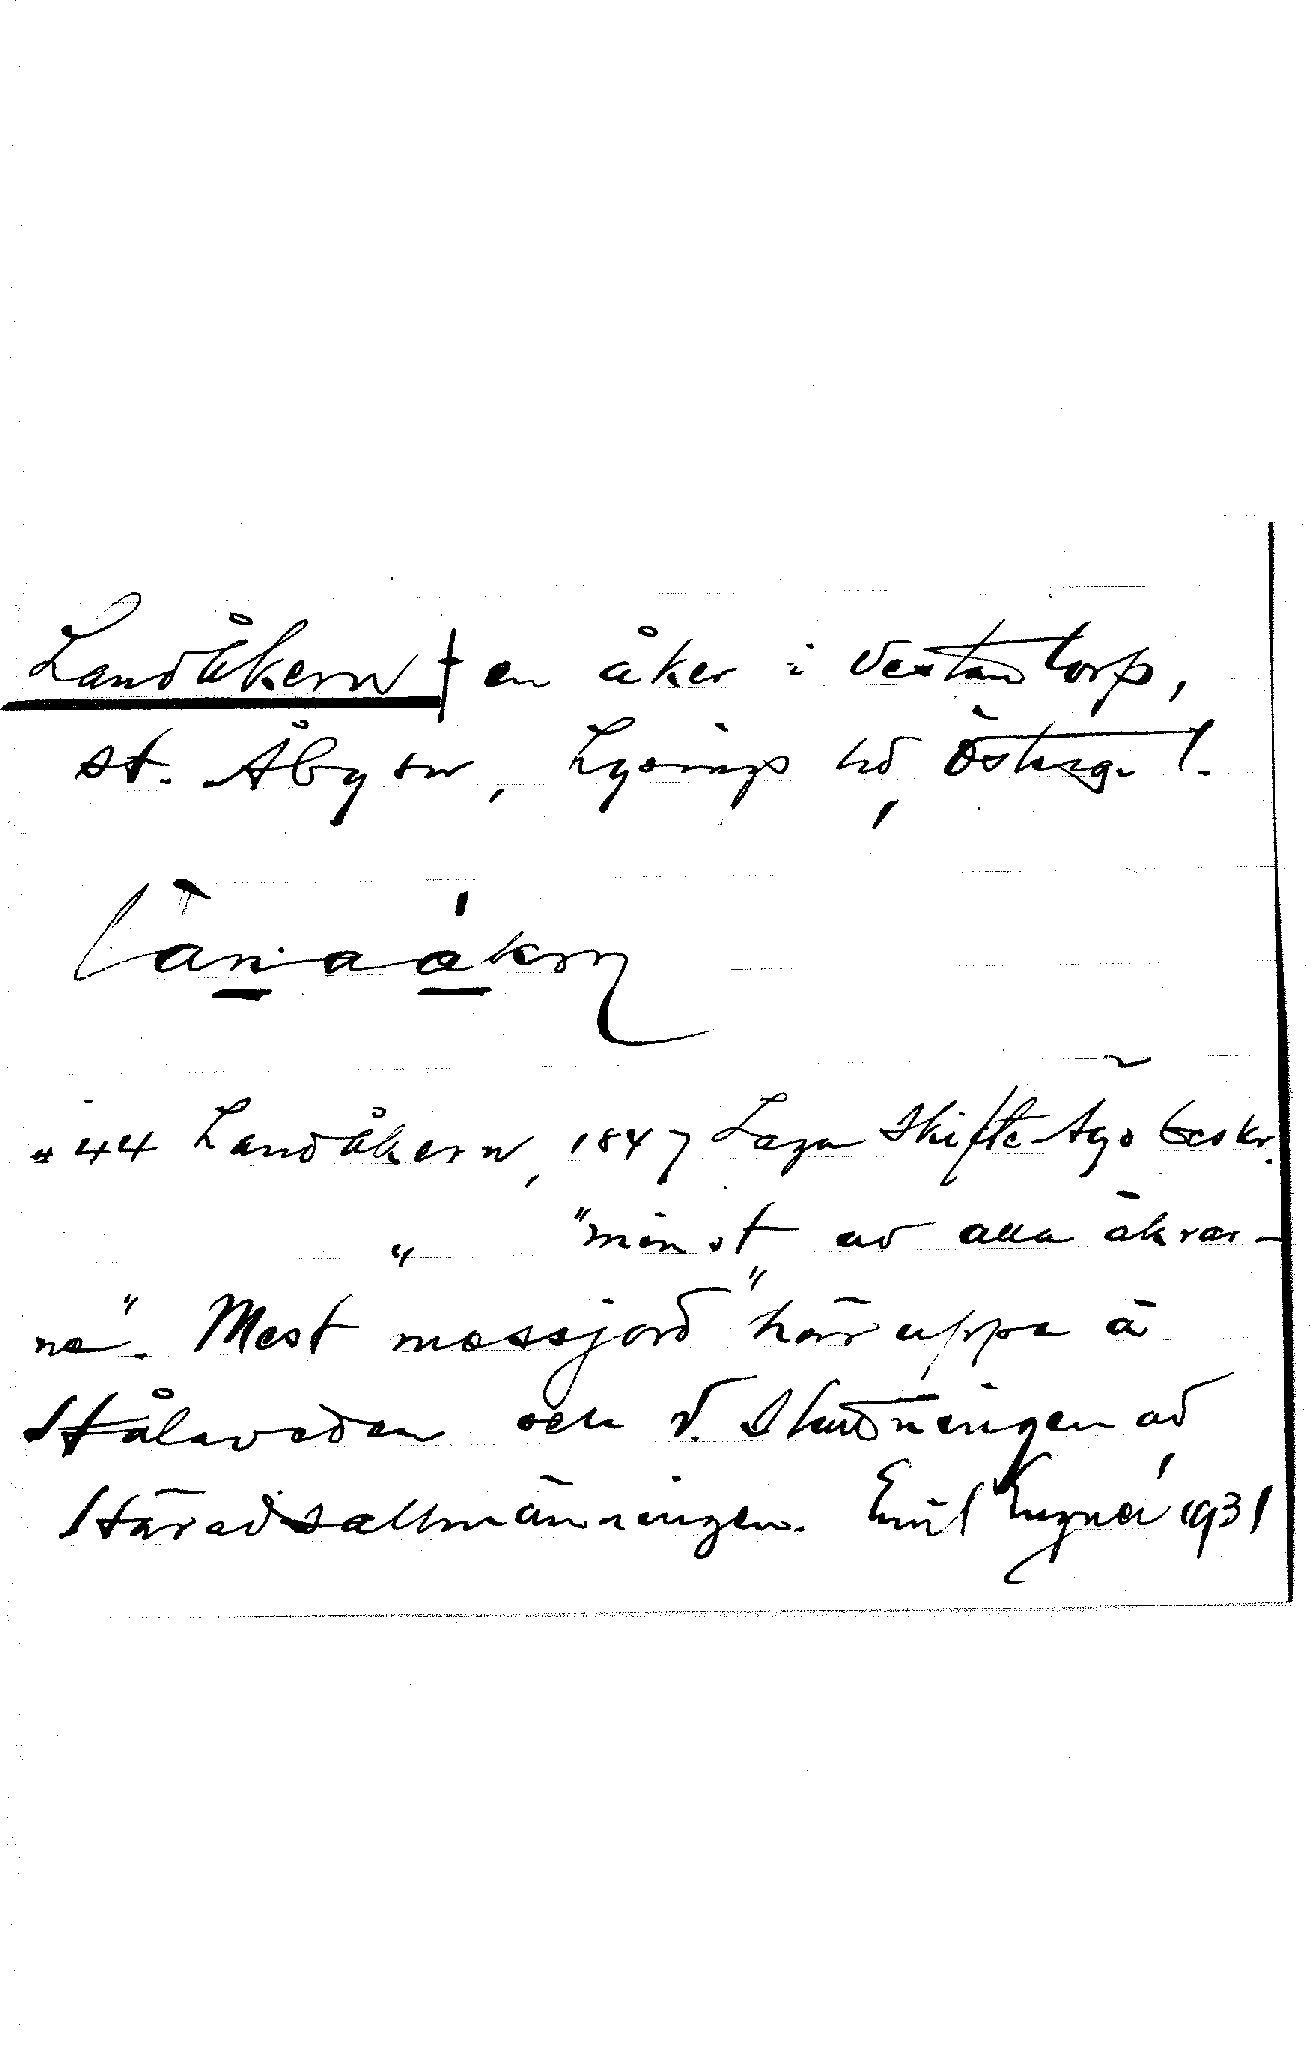 Landåkern en åker i Vestantorp,
st. Åby sn, Lysings hd, Östergl.
# 44 Landåkern, 1847 Laga Skifte Ägobeskr.
" "minst av alla åkrar-
na". Mest mossjord "häruppe å
Hålaveden och V. Skudningen av
Häradsallmänningen. Emil Eugnér 1931